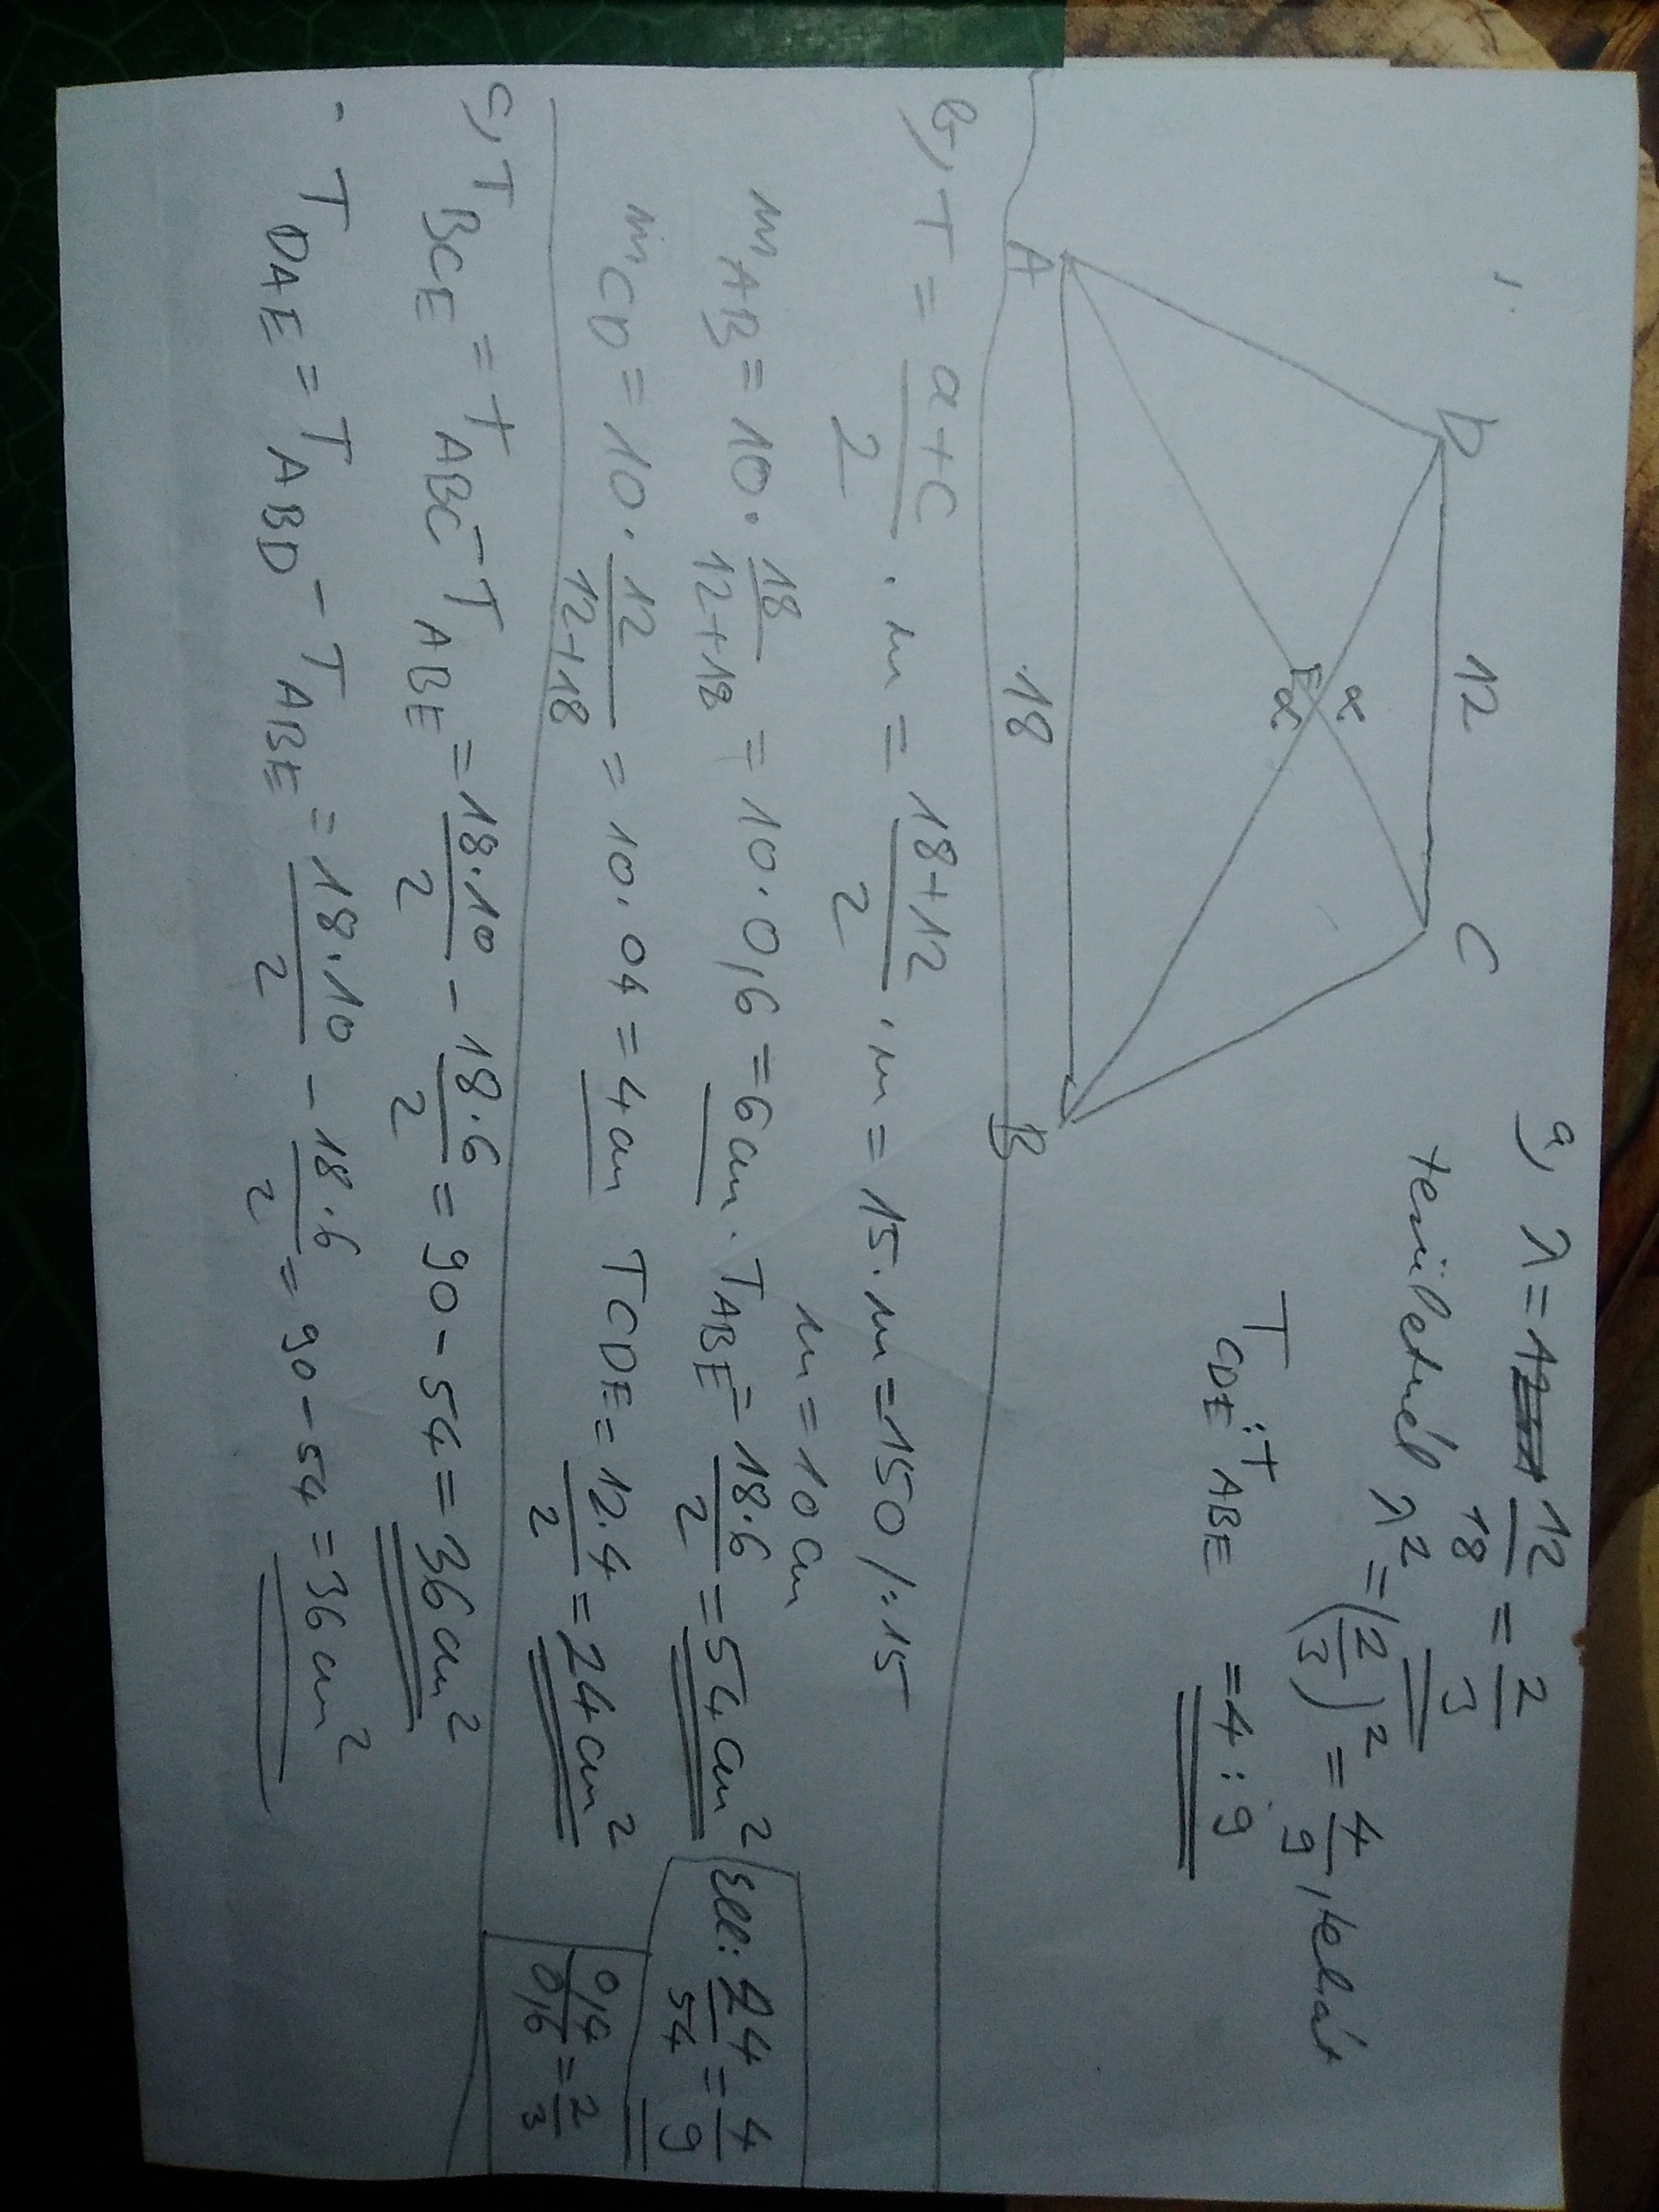 D 12 C
α
E
α
A 18 B
a, λ = 12/18 = 2/3
területnél λ² = (2/3)² = 4/9, tehát
T_CDE : T_ABE = 4 : 9
b, T = (a+c)/2 · m = (18+12)/2 · m = 15 · m = 150 /:15
m = 10 cm
m_AB = 10 · 18/(12+18) = 10 · 0,6 = 6 cm. T_ABE = (18·6)/2 = 54 cm²
Ell: 24/54 = 4/9
m_CD = 10 · 12/(12+18) = 10 · 04 = 4 cm TCDE = (12·4)/2 = 24 cm²
0,4/0,6 = 2/3
c, T_BCE = T_ABC - T_ABE = (18·10)/2 - (18·6)/2 = 90 - 54 = 36 cm²
- T_DAE = T_ABD - T_ABE = (18·10)/2 - (18·6)/2 = 90 - 54 = 36 cm²